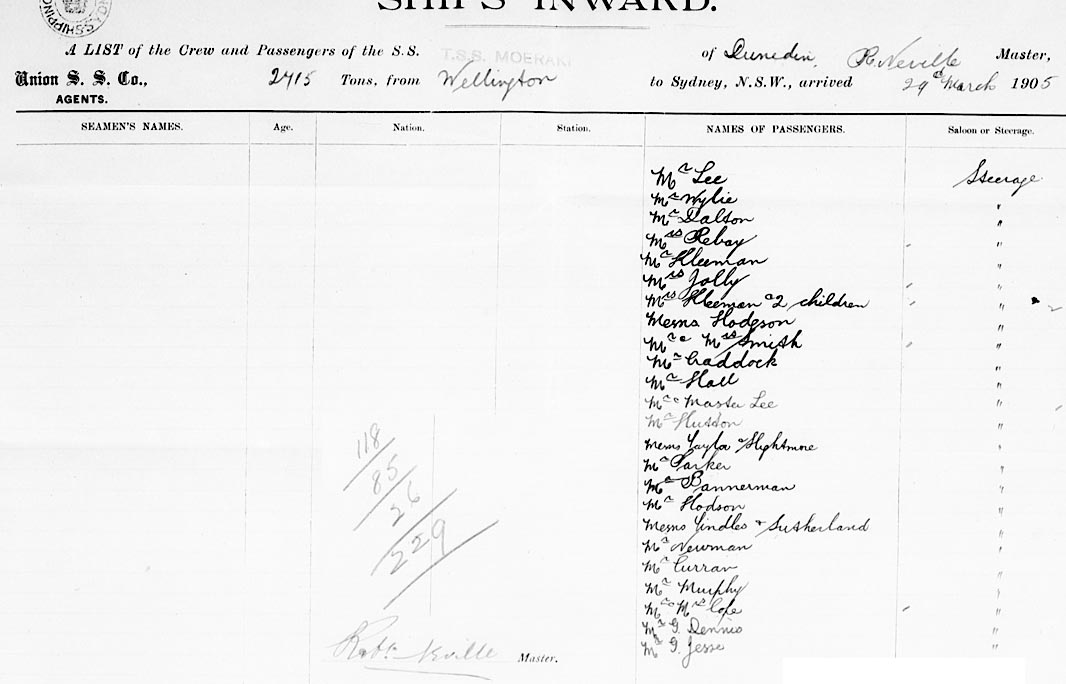 SHIPS INWARD.
A LIST of the Crew and Passengers of the S.S. T.S.S. MOERAKI of Dunedin, R. Neville Master,
Union S. S. Co., 2715 Tons, from Wellington to Sydney, N.S.W., arrived 29th March 1905
AGENTS.
SEAMEN'S NAMES. Age. Nation. Station. NAMES OF PASSENGERS. Saloon or Steerage.
Mr Lee Steerage
Mr Wylie "
Mr Dalton "
Mrs Rebay "
Mr Kleeman "
Mrs Jolly "
Mrs Kleeman & 2 children "
Messrs Hodgson "
Mr & Mrs Smith "
Mr Craddock "
Mr Hall "
Mr & Master Lee "
Mr Hutton "
Messrs Taylor & Hightmore "
Mr Parker "
Mr Bannerman "
Mr Hodson "
Messrs & Sutherland "
Mr Newman "
Mr Curran "
Mr Murphy "
Mr & Mrs Cope "
Mr G. Dennis "
Mr G. Jesse "
118
85
26
229
Robt. Neville Master.